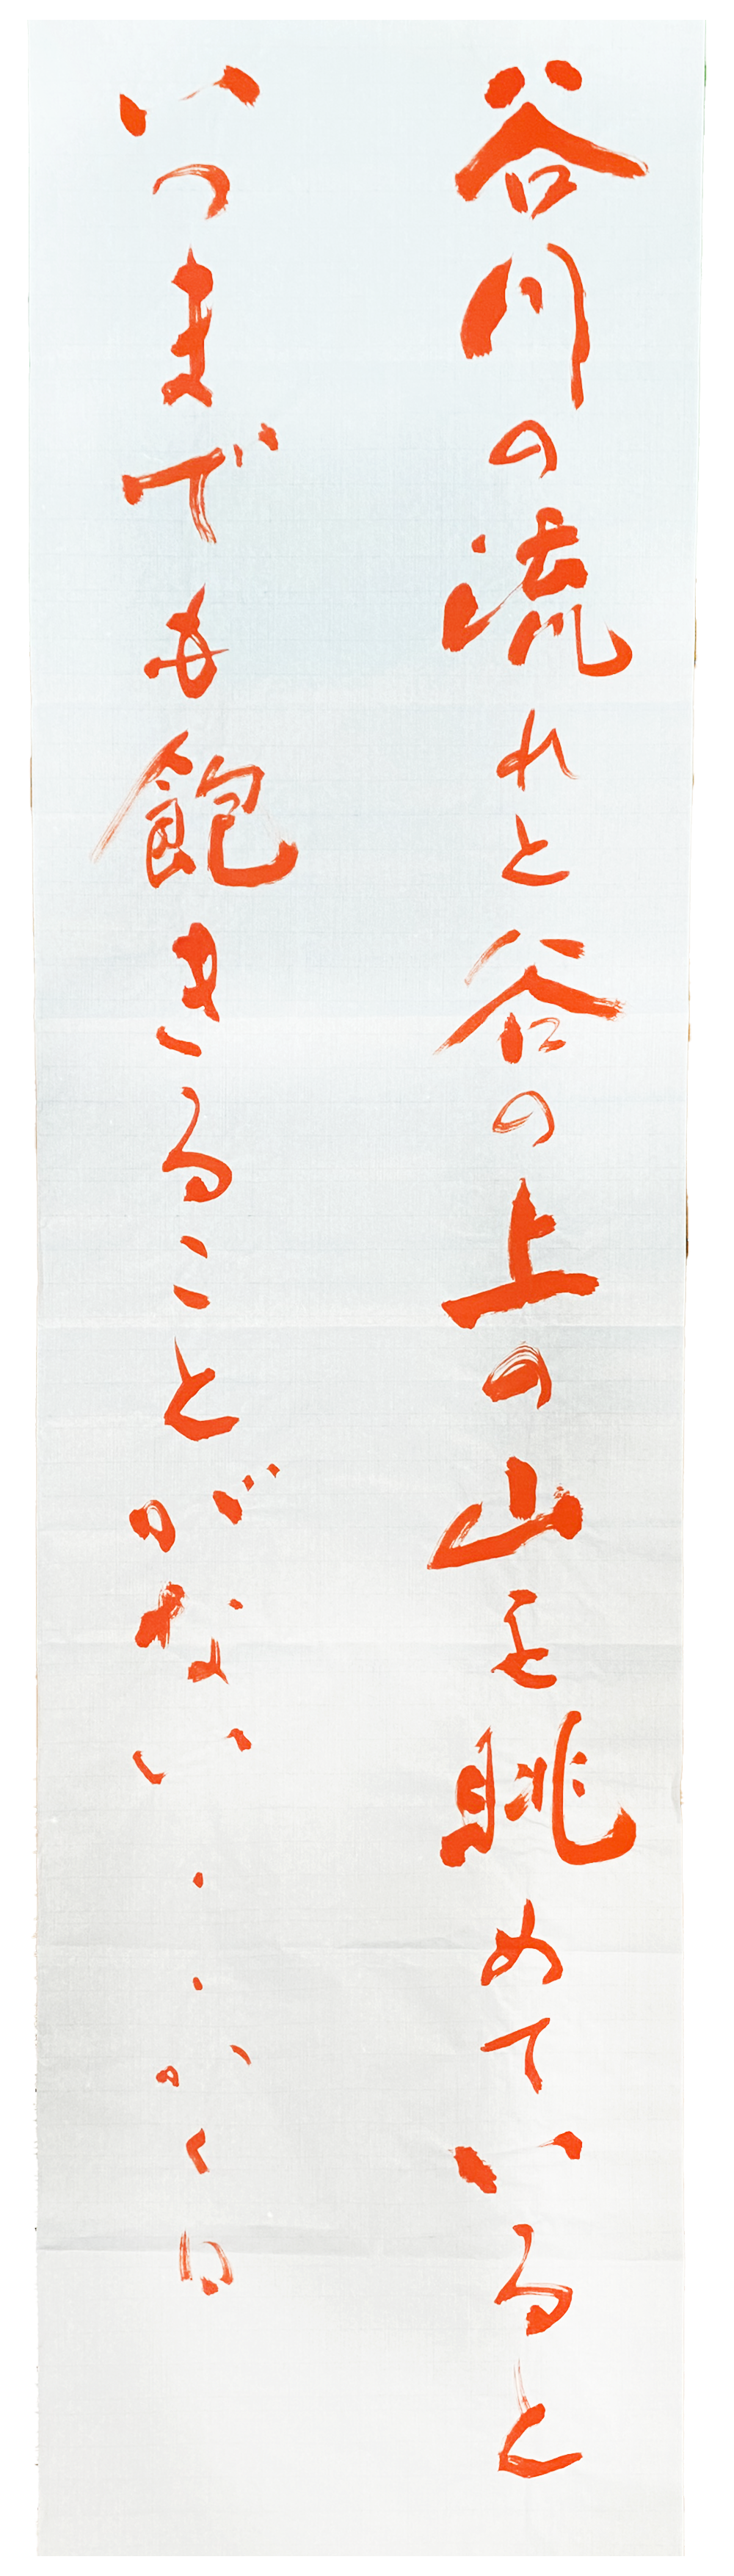 谷川の流れと谷の上の山を眺めていると
いつまでも飽きることがない・・かくは